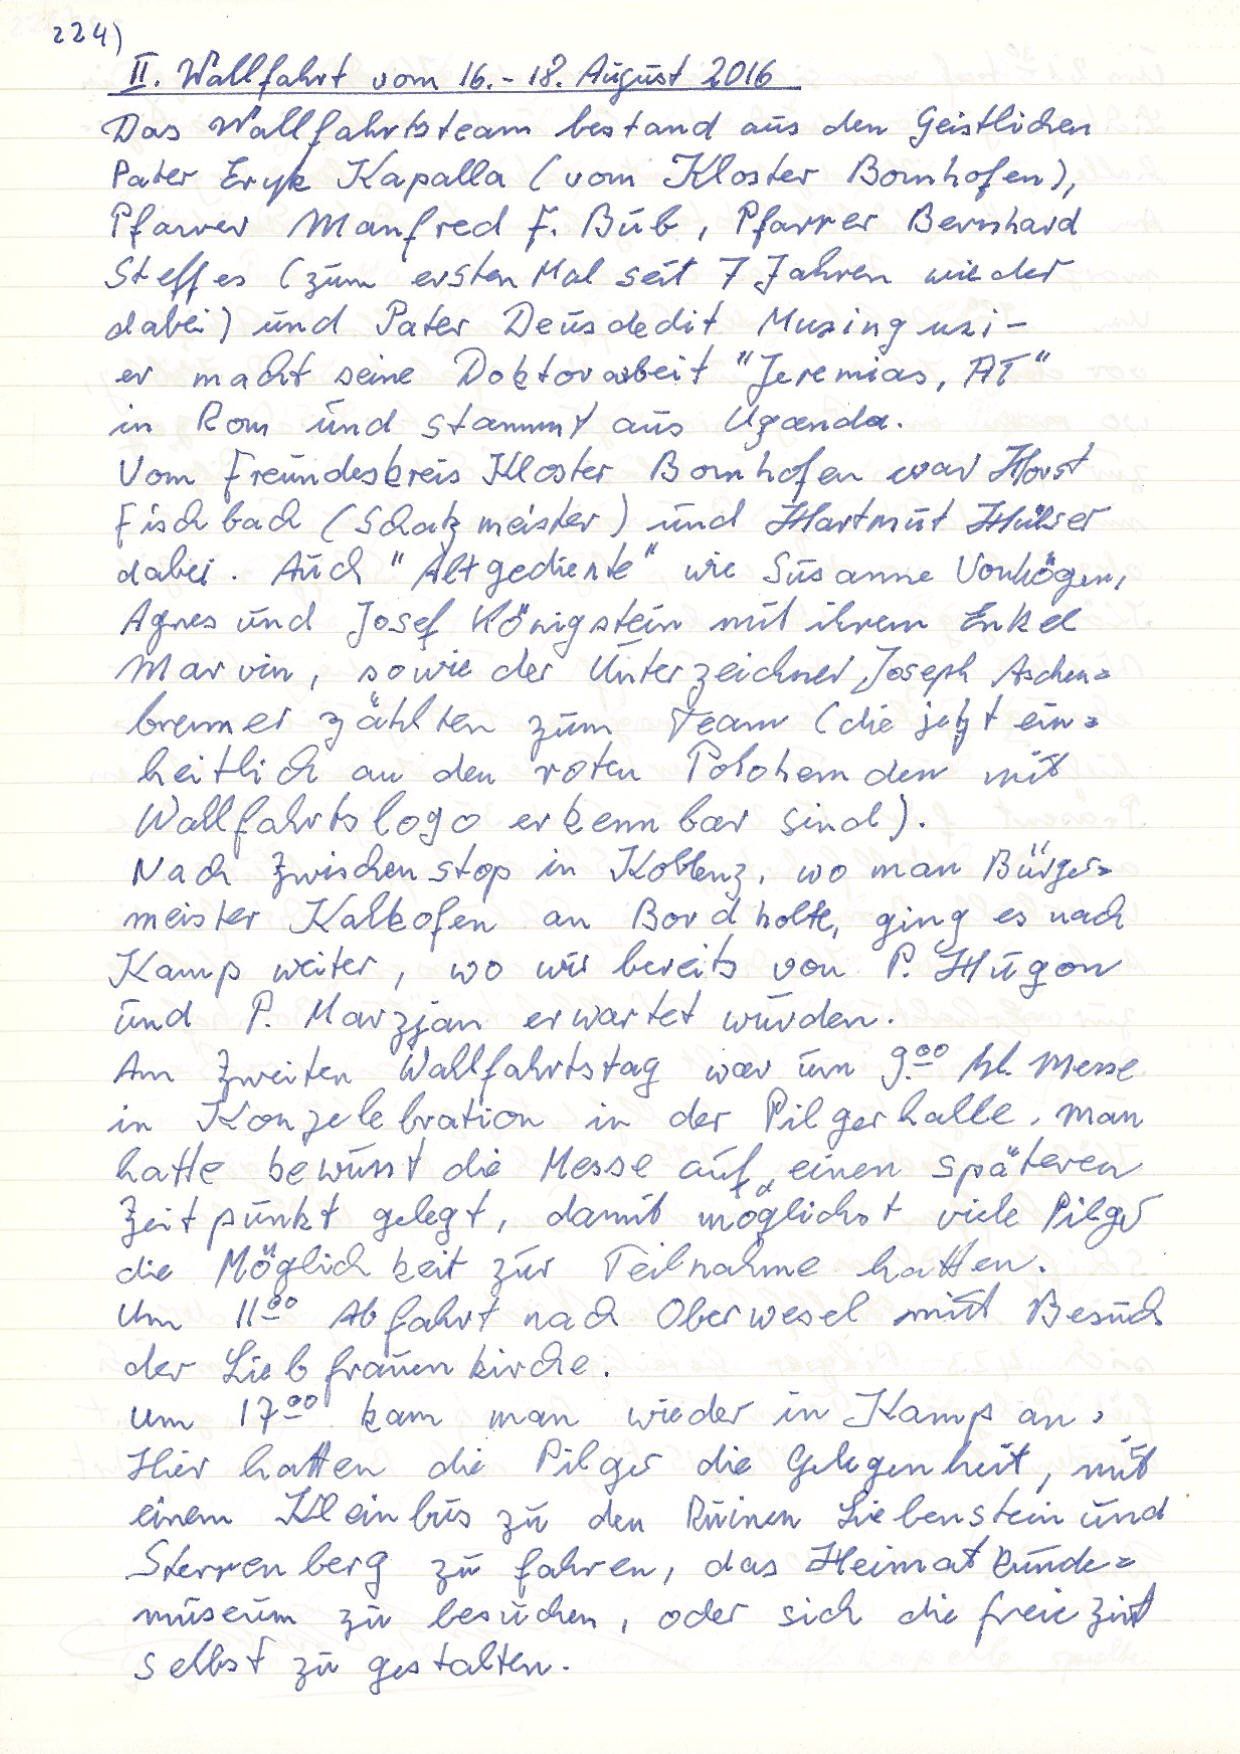 224)
II. Wallfahrt vom 16.-18. August 2016
Das Wallfahrtsteam bestand aus den Geistlichen
Pater Eryk Kapalla (vom Kloster Bornhofen),
Pfarrer Manfred F. Bub, Pfarrer Bernhard
Steffes (zum ersten Mal seit 7 Jahren wieder
dabei) und Pater Deusdedit Musinguzi -
er macht seine Doktorarbeit "Jeremias, AT"
in Rom und stammt aus Uganda.
Vom Freundeskreis Kloster Bornhofen war Horst
Fischbach (Schatzmeister) und Hartmut Hülser
dabei. Auch "Altgediente" wie Susanne Vonhögen,
Agnes und Josef Königstein mit ihrem Enkel
Marvin, sowie der Unterzeichner Joseph Aschen=
brenner zählten zum Team (die jetzt ein=
heitlich an den roten Polohemden mit
Wallfahrtslogo erkennbar sind).
Nach Zwischenstop in Koblenz, wo man Bürger=
meister Kalkofen an Bord holte, ging es nach
Kamp weiter, wo wir bereits von P. Hugon
und P. Marzjan erwartet wurden.
Am zweiten Wallfahrtstag war um 9.00 hl. Messe
in Konzelebration in der Pilgerhalle. Man
hatte bewusst die Messe auf einen späteren
Zeitpunkt gelegt, damit möglichst viele Pilger
die Möglichkeit zur Teilnahme hatten.
Um 11.00 Abfahrt nach Oberwesel mit Besuch
der Liebfrauenkirche.
Um 17.00 kam man wieder in Kamp an.
Hier hatten die Pilger die Gelegenheit, mit
einem Kleinbus zu den Ruinen Liebenstein und
Sterrenberg zu fahren, das Heimatkunde=
museum zu besuchen, oder sich die freie Zeit
selbst zu gestalten.